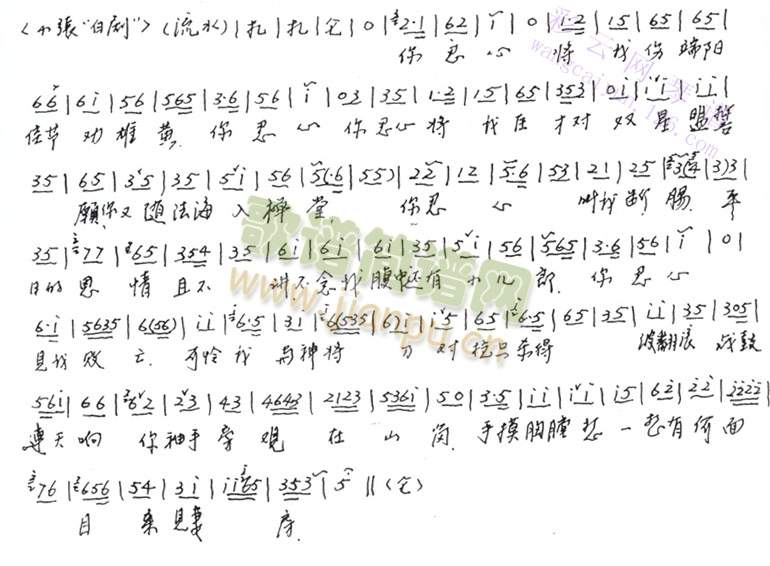 <小張"白劇"> (流水) | 扎 | 扎 | 仓 | 0 | 2·1 | 62 | i | 0 | i·2 | 15 | 65 | 65 |
你 忍 心 将 我 伤 端阳
66 | 6i | 56 | 565 | 3·6 | 56 | i | 03 | 35 | 1·2 | 15 | 65 | 353 | 0i | ii | ii |
佳节 劝 雄 黄. 你 忍 心 你 忍心 将 我 才对 双 星 盟誓
35 | 65 | 35 | 35 | 5i | 56 | 5(·6 | 55) | 22 | 12 | 5·6 | 53 | 21 | 25 | 3(4 | 3)3 |
願你又 随法海 入 禅 堂. 你忍 心 叫我断 腸. 平
35 | 77 | 65 | 354 | 35 | 6i | 6i | 6i | 35 | 5i | 56 | 565 | 3·6 | 56 | i | 0 |
日的 恩 情 且不 讲. 不念我 腹中还有 小儿 郎. 你 忍心
6·i | 5635 | 6(56) | ii | 6·5 | 3i | 6(535 | 6)i | i5 | 65 | 6·5 | 65 | 35 | ii | 35 | 305 |
見我 敗 亡. 可怜我 与神将 刀 对 枪只杀得 波翻浪 战鼓
56i | 66 | 62 | 23 | 43 | 4643 | 2123 | 536i | 50 | 3·5 | ii | ii | i5 | 62 | 22 | 2222 |
天啊 你袖手 旁 观 在 山 岗. 手摸胸膛想 一想有何面
76 | 656 | 54 | 3i | ii65 | 353 | 5 || (仓)
目 来見妻 房.
歌谱简谱网
www.jianpu.cn